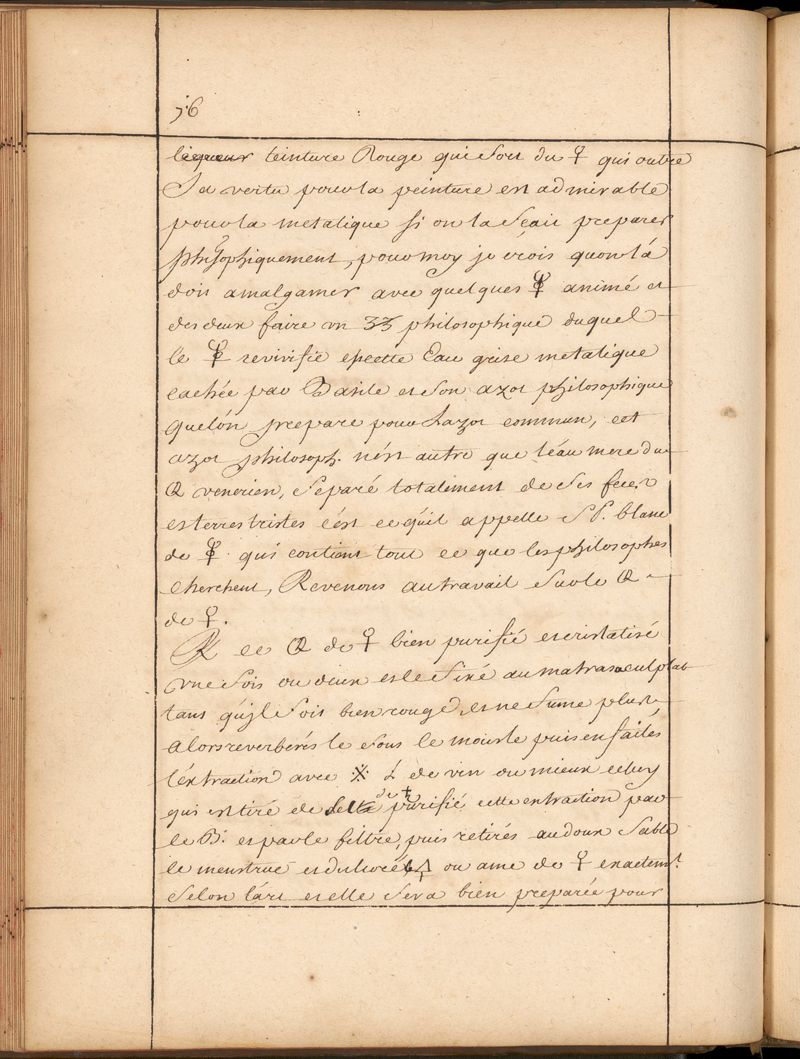 j6
liqueur teinture Rouge qui sort du ♀ qui outre
Sa vertu pour la peinture est admirable
pour la metalique si on la sçait preparer
philosophiquement, pour moy je crois quon lá
doit amalgamer avec quelques ☿ animé et
des deux faire un philosophique duquel
le ☿ revivifié est cette Eau grise metalique
cachée par Basile et son azot philosophique
quelón prepare pour Lazot commun, cet
azot philosoph. nést autre que léau mere du
venerien, Separé totalement de Ses feces
et terrestrites cést ce qúil appelle SP. blanc
de ☿ qui contient tout ce que les philosophes
Cherchent, Revenons au travail Sur le
de ♀.
ce de ♀ bien purifié et cristalisé
vne fois ou deux et le fixé au matras a cul plat
tant qúil Soit bien rouge et ne fume plus,
alors reverberés le Sous le moufle puis en faites
léxtraction avec de vin ou mieux celuy
qui est tiré de purifié cette extraction par
le B. et par le filtre, puis retirés au doux Sable
le menstrue et dulcorés ou ame de ♀ exactemt.
Selon lárt et elle Sera bien preparée pour